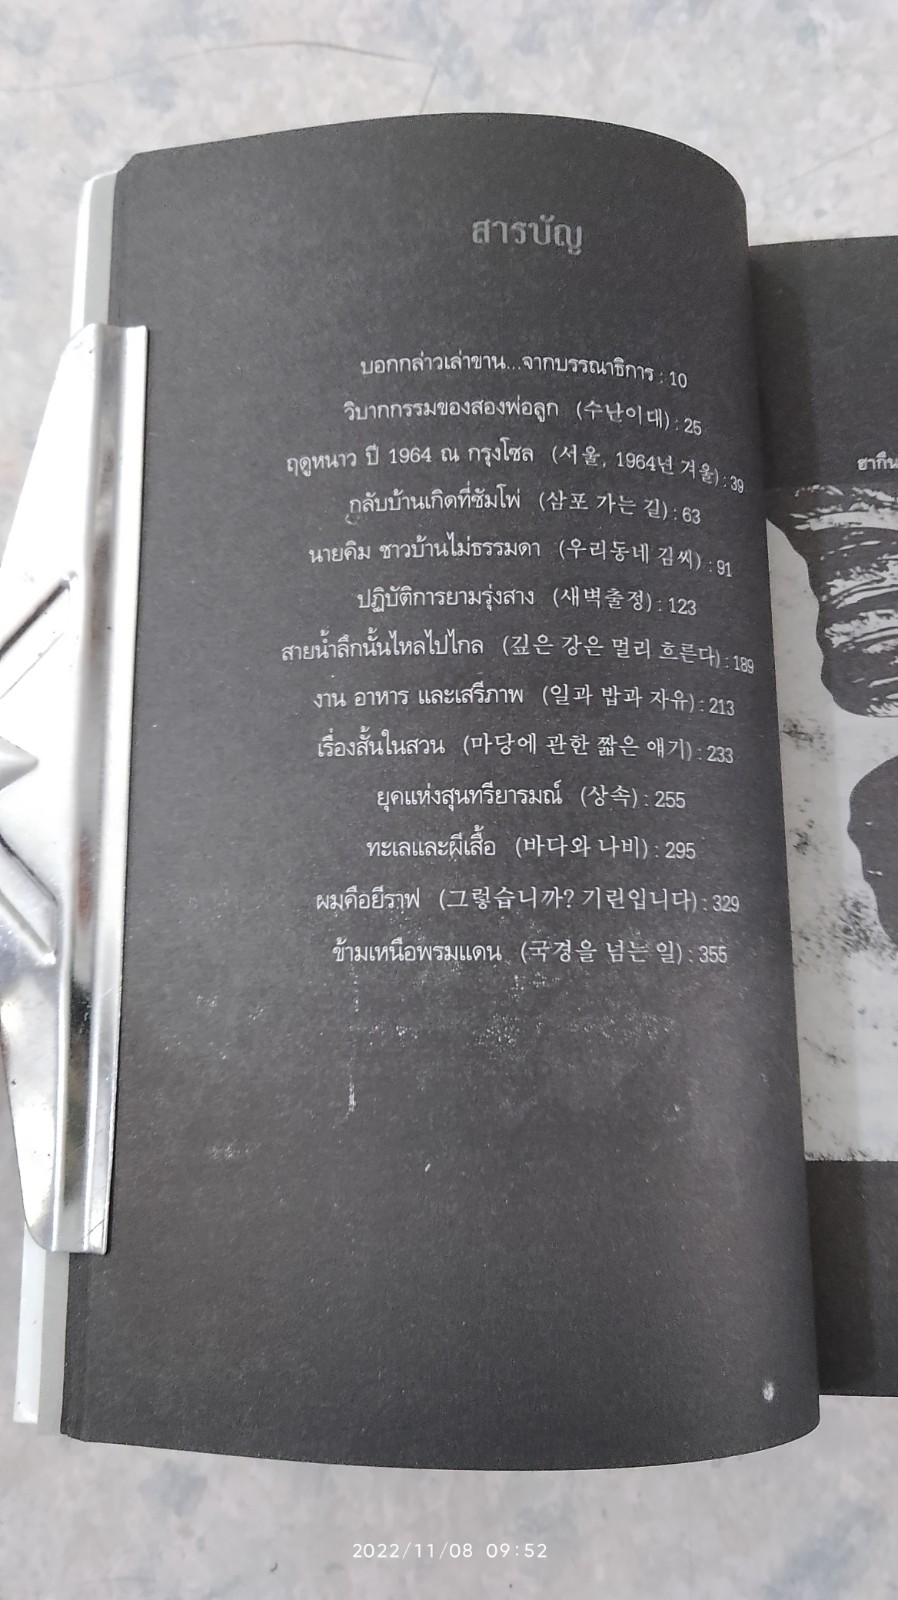 สารบัญ
บอกกล่าวเล่าขาน...จากบรรณาธิการ : 10
วิบากกรรมของสองพ่อลูก (수난이대) : 25
ฤดูหนาว ปี 1964 ณ กรุงโซล (서울, 1964년 겨울) : 39
กลับบ้านเกิดที่ซัมโพ่ (삼포 가는 길) : 63
นายคิม ชาวบ้านไม่ธรรมดา (우리동네 김씨) : 91
ปฏิบัติการยามรุ่งสาง (새벽출정) : 123
สายน้ำลึกนั้นไหลไปไกล (깊은 강은 멀리 흐른다) : 189
งาน อาหาร และเสรีภาพ (일과 밥과 자유) : 213
เรื่องสั้นในสวน (마당에 관한 짧은 얘기) : 233
ยุคแห่งสุนทรียารมณ์ (상속) : 255
ทะเลและผีเสื้อ (바다와 나비) : 295
ผมคือยีราฟ (그렇습니까? 기린입니다) : 329
ข้ามเหนือพรมแดน (국경을 넘는 일) : 355
2022/11/08 09:52